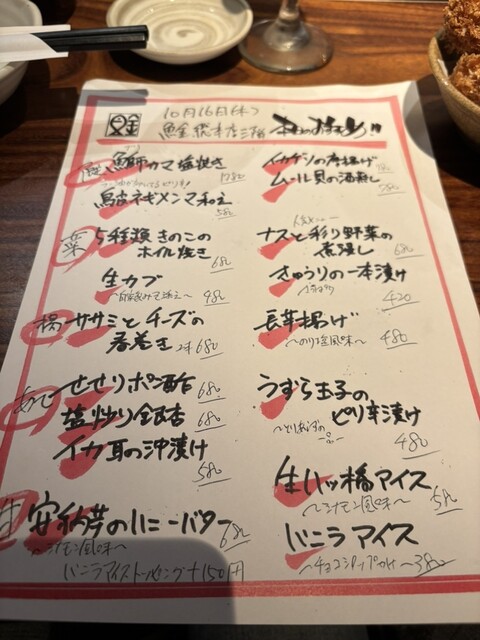 10月16日(木)
本日のおすすめ!!
鰤カマ塩焼き
鳥皮ネギメンマ和え
580
菜
5種類きのこの
ホイル焼き
680
生カブ
980
揚
ササミとチーズの
春巻き
2本 680
せせりポン酢 680
塩炒り銀杏 680
イカ耳の沖漬け
580
安納芋のハニーバター
680
〜シナモン風味〜
バニラアイストッピング+150円
イカゲソの唐揚げ
ムール貝の酒蒸し
780
ナスと彩り野菜の
煮浸し 680
きゅうりの一本漬け
420
長芋揚げ
〜のり塩風味〜
480
うずら玉子の
ピリ辛漬け
480
生八ッ橋アイス
〜シナモン風味〜
580
バニラアイス
〜チョコチップがけ〜 380